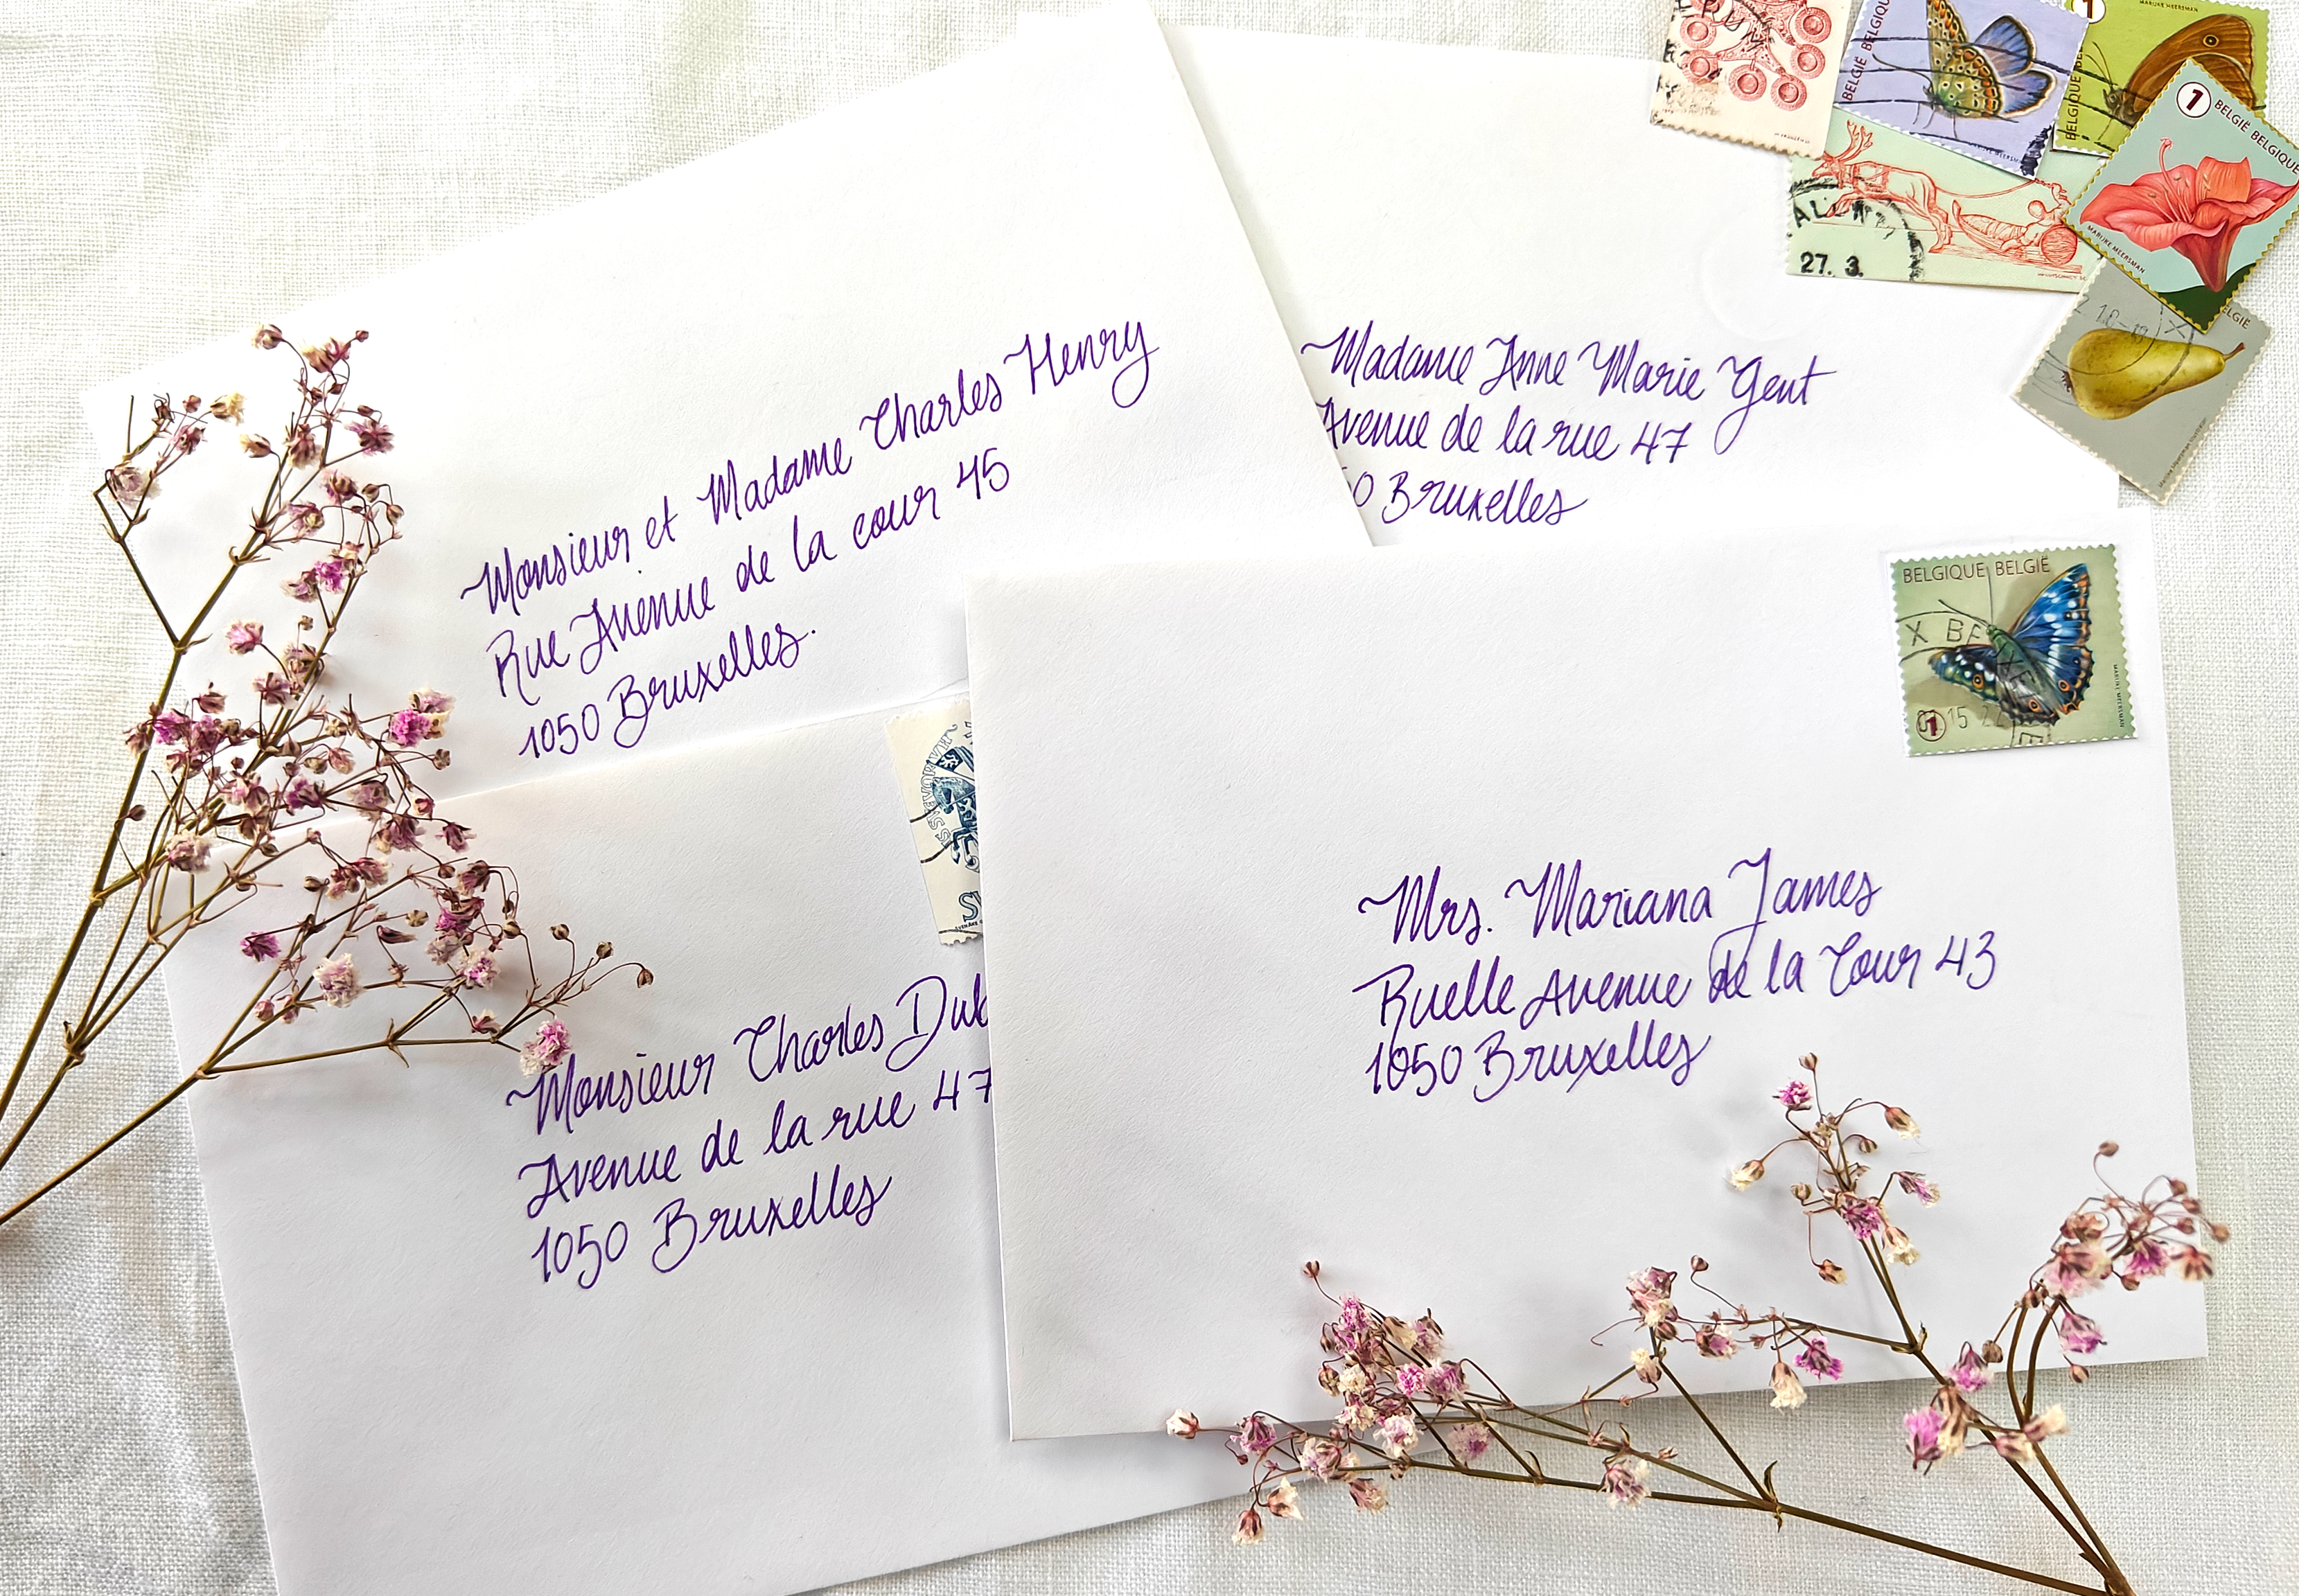 Monsieur et Madame Charles Henry
Rue Avenue de la cour 45
1050 Bruxelles.
Madame Anne Marie Gent
Avenue de la rue 47
Bruxelles
Monsieur Charles
Avenue de la rue 47
1050 Bruxelles
Mrs. Mariana James
Ruelle Avenue de la Cour 43
1050 Bruxelles
BELGIQUE BELGIË
1
MARIJKE MEERSMAN
BELGIË BELGIQUE
1
MARIJKE MEERSMAN
1
BELGIË BELGIQUE
MARIJKE MEERSMAN
27. 3.